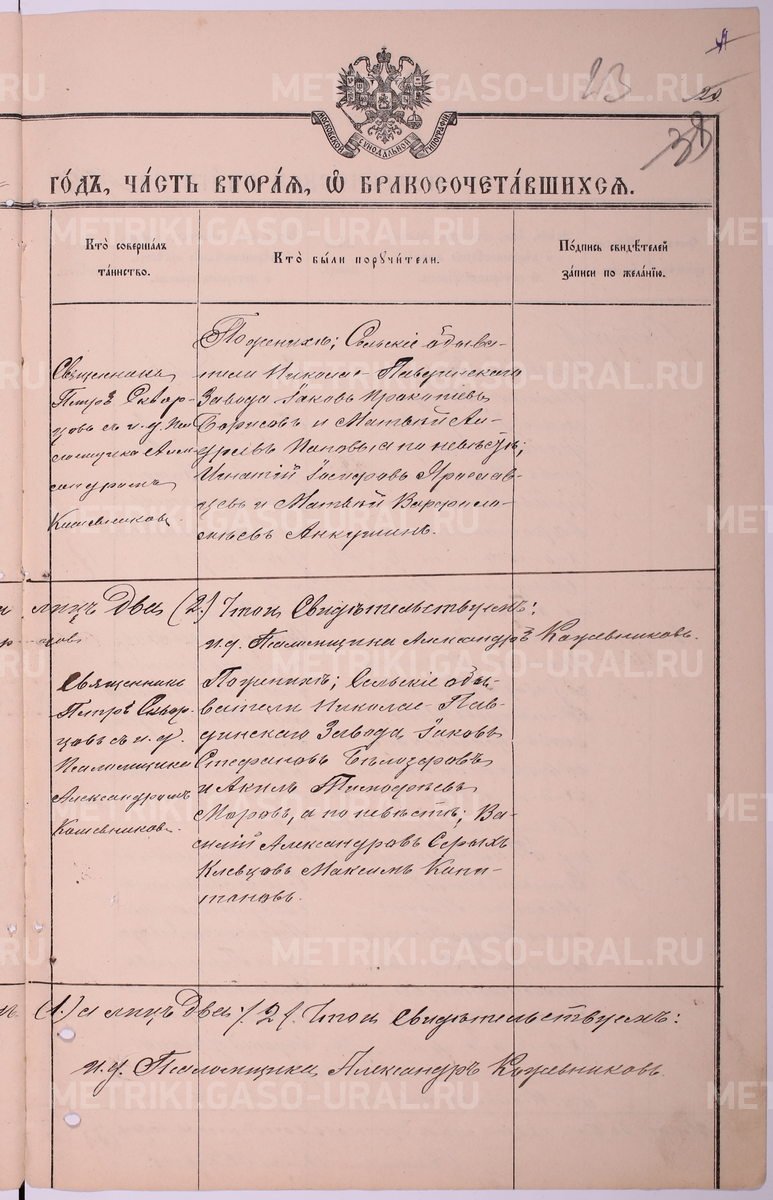 23
38
МОСКОВСКОЙ СѴНОДАЛЬНОЙ ТИПОГРАФІИ
ГО́ДЪ, ЧА́СТЬ ВТОРА́Я, Ѡ҆ БРАКОСОЧЕТА́ВШИХСЯ.
Кто̀ соверша́лъ
та́инство.
Кто̀ бы́ли порꙋчи́тели.
По́дпись свидѣ́телей
за́писи по жела́нію.
Священникъ
Петръ Сквор-
цовъ съ и. д. Пса
ломщика Алек-
сандромъ
Кожевниковъ.
По женихѣ; Сельскіе обыва-
тели Николае-Павдинскаго
Завода Іаковъ Прокопіевъ
Борисовъ и Матвѣй Ан-
дреевъ Поповъ, а по невѣстѣ;
Игнатій Ярослав-
цевъ и Матвѣй Варфоло-
меевъ Анкушинъ.
лицъ Два (2.) Итого Свидѣтельствуемъ:
и. д. Псаломщика Александръ Кожевниковъ.
Священникъ
Петръ Сквор-
цовъ съ и. д.
Псаломщика
Александромъ
Кожевниковъ.
По женихѣ; Сельскіе обы-
ватели Николае-Пав-
динскаго Завода Іаковъ
Стефановъ Бѣлозеровъ
и Акилъ Тимофеевъ
Моровъ, а по невѣстѣ; Ва-
силій Александровъ Серыхъ
Клевцовъ Максимъ Капи-
тоновъ.
(1.) а лицъ Два /2/. Итого Свидѣтельствуемъ:
и. д. Псаломщика Александръ Кожевниковъ.
METRIKI.GASO-URAL.RU